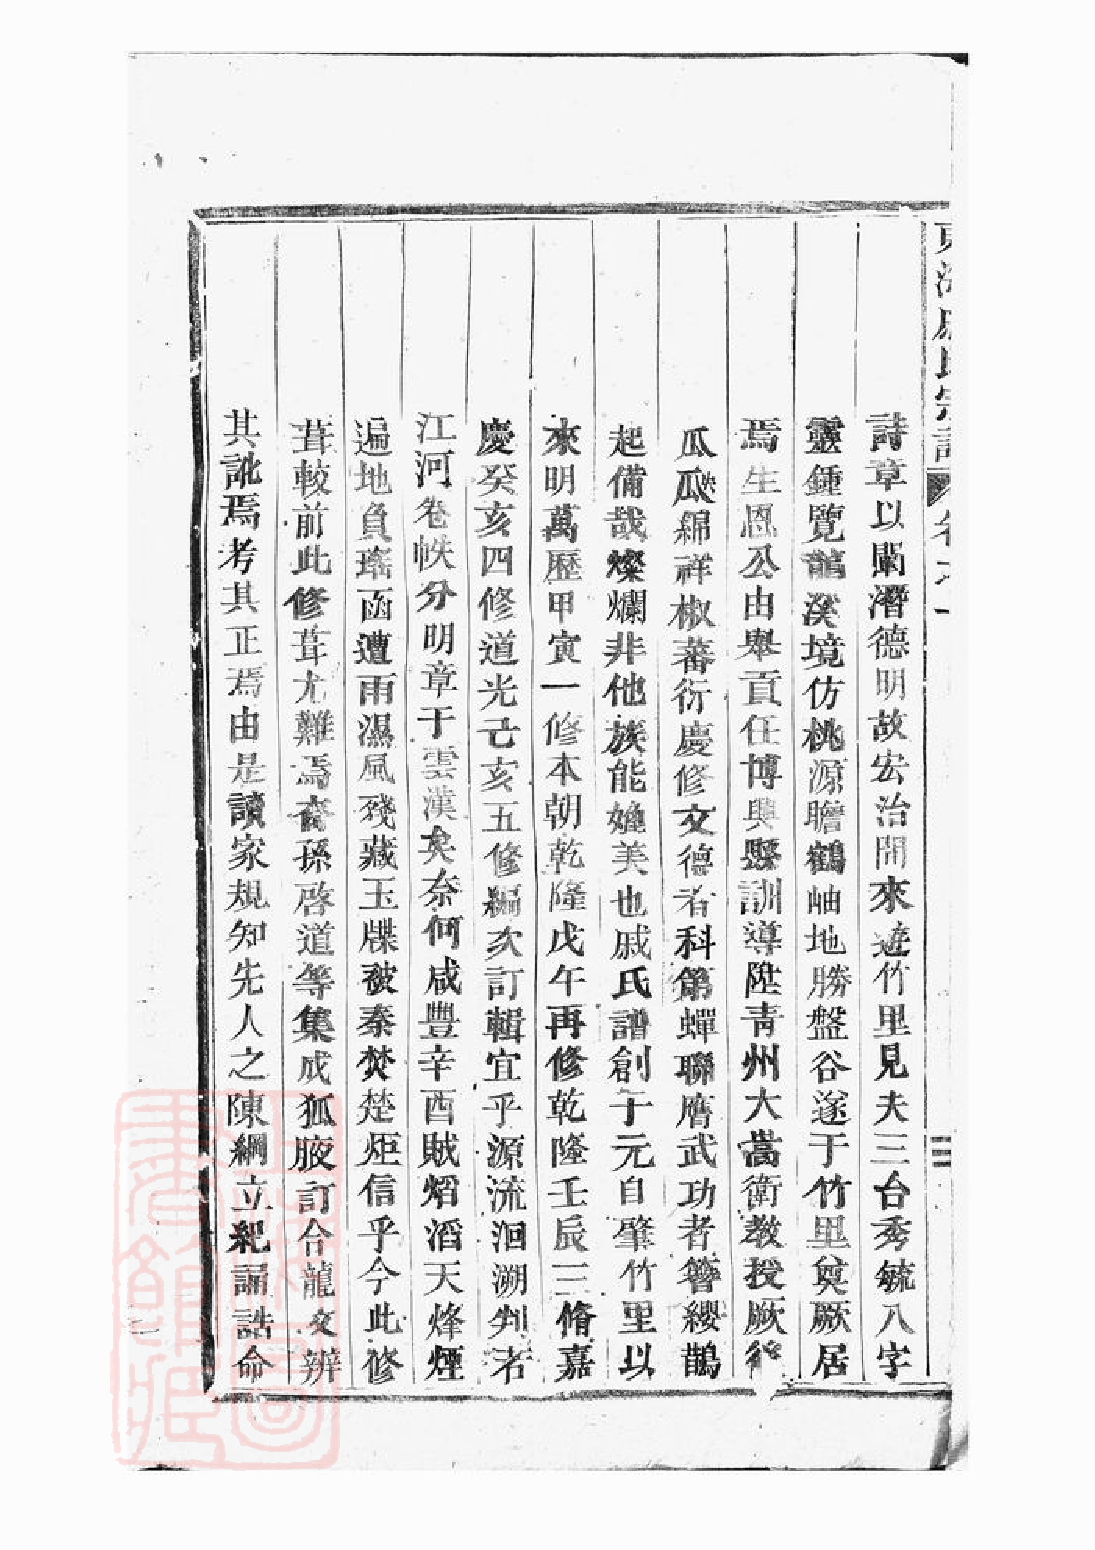 東海戚氏宗譜 卷之一 二
詩章以闡潛德明故宏治開來遊竹里見夫三台秀毓八字
靈鍾覽鵲溪境仿桃源瞻鶴岫地勝盤谷遂于竹里奠厥居
焉生恩公由舉貢任博興縣訓導陞青州大嵩衛教授厥後
瓜瓞綿祥椒蕃衍慶修文德者科第蟬聯膺武功者簪纓鵲
起備哉燦爛非他族能媲美也戚氏譜創于元自肇竹里以
來明萬歷甲寅一修本朝乾隆戊午再修乾隆壬辰三脩嘉
慶癸亥四修道光己亥五修編次訂輯宜乎源流洄溯判若
江河卷帙分明章于雲漢矣奈何咸豐辛酉賊熖滔天烽煙
遍地負瑤函遭雨濕風殘藏玉牒被秦焚楚炬信乎今此修
葺較前此修葺尤難焉裔孫啓道等集成狐腋訂合龍文辨
其訛焉考其正焉由是讀家規知先人之陳綱立紀誦誥命